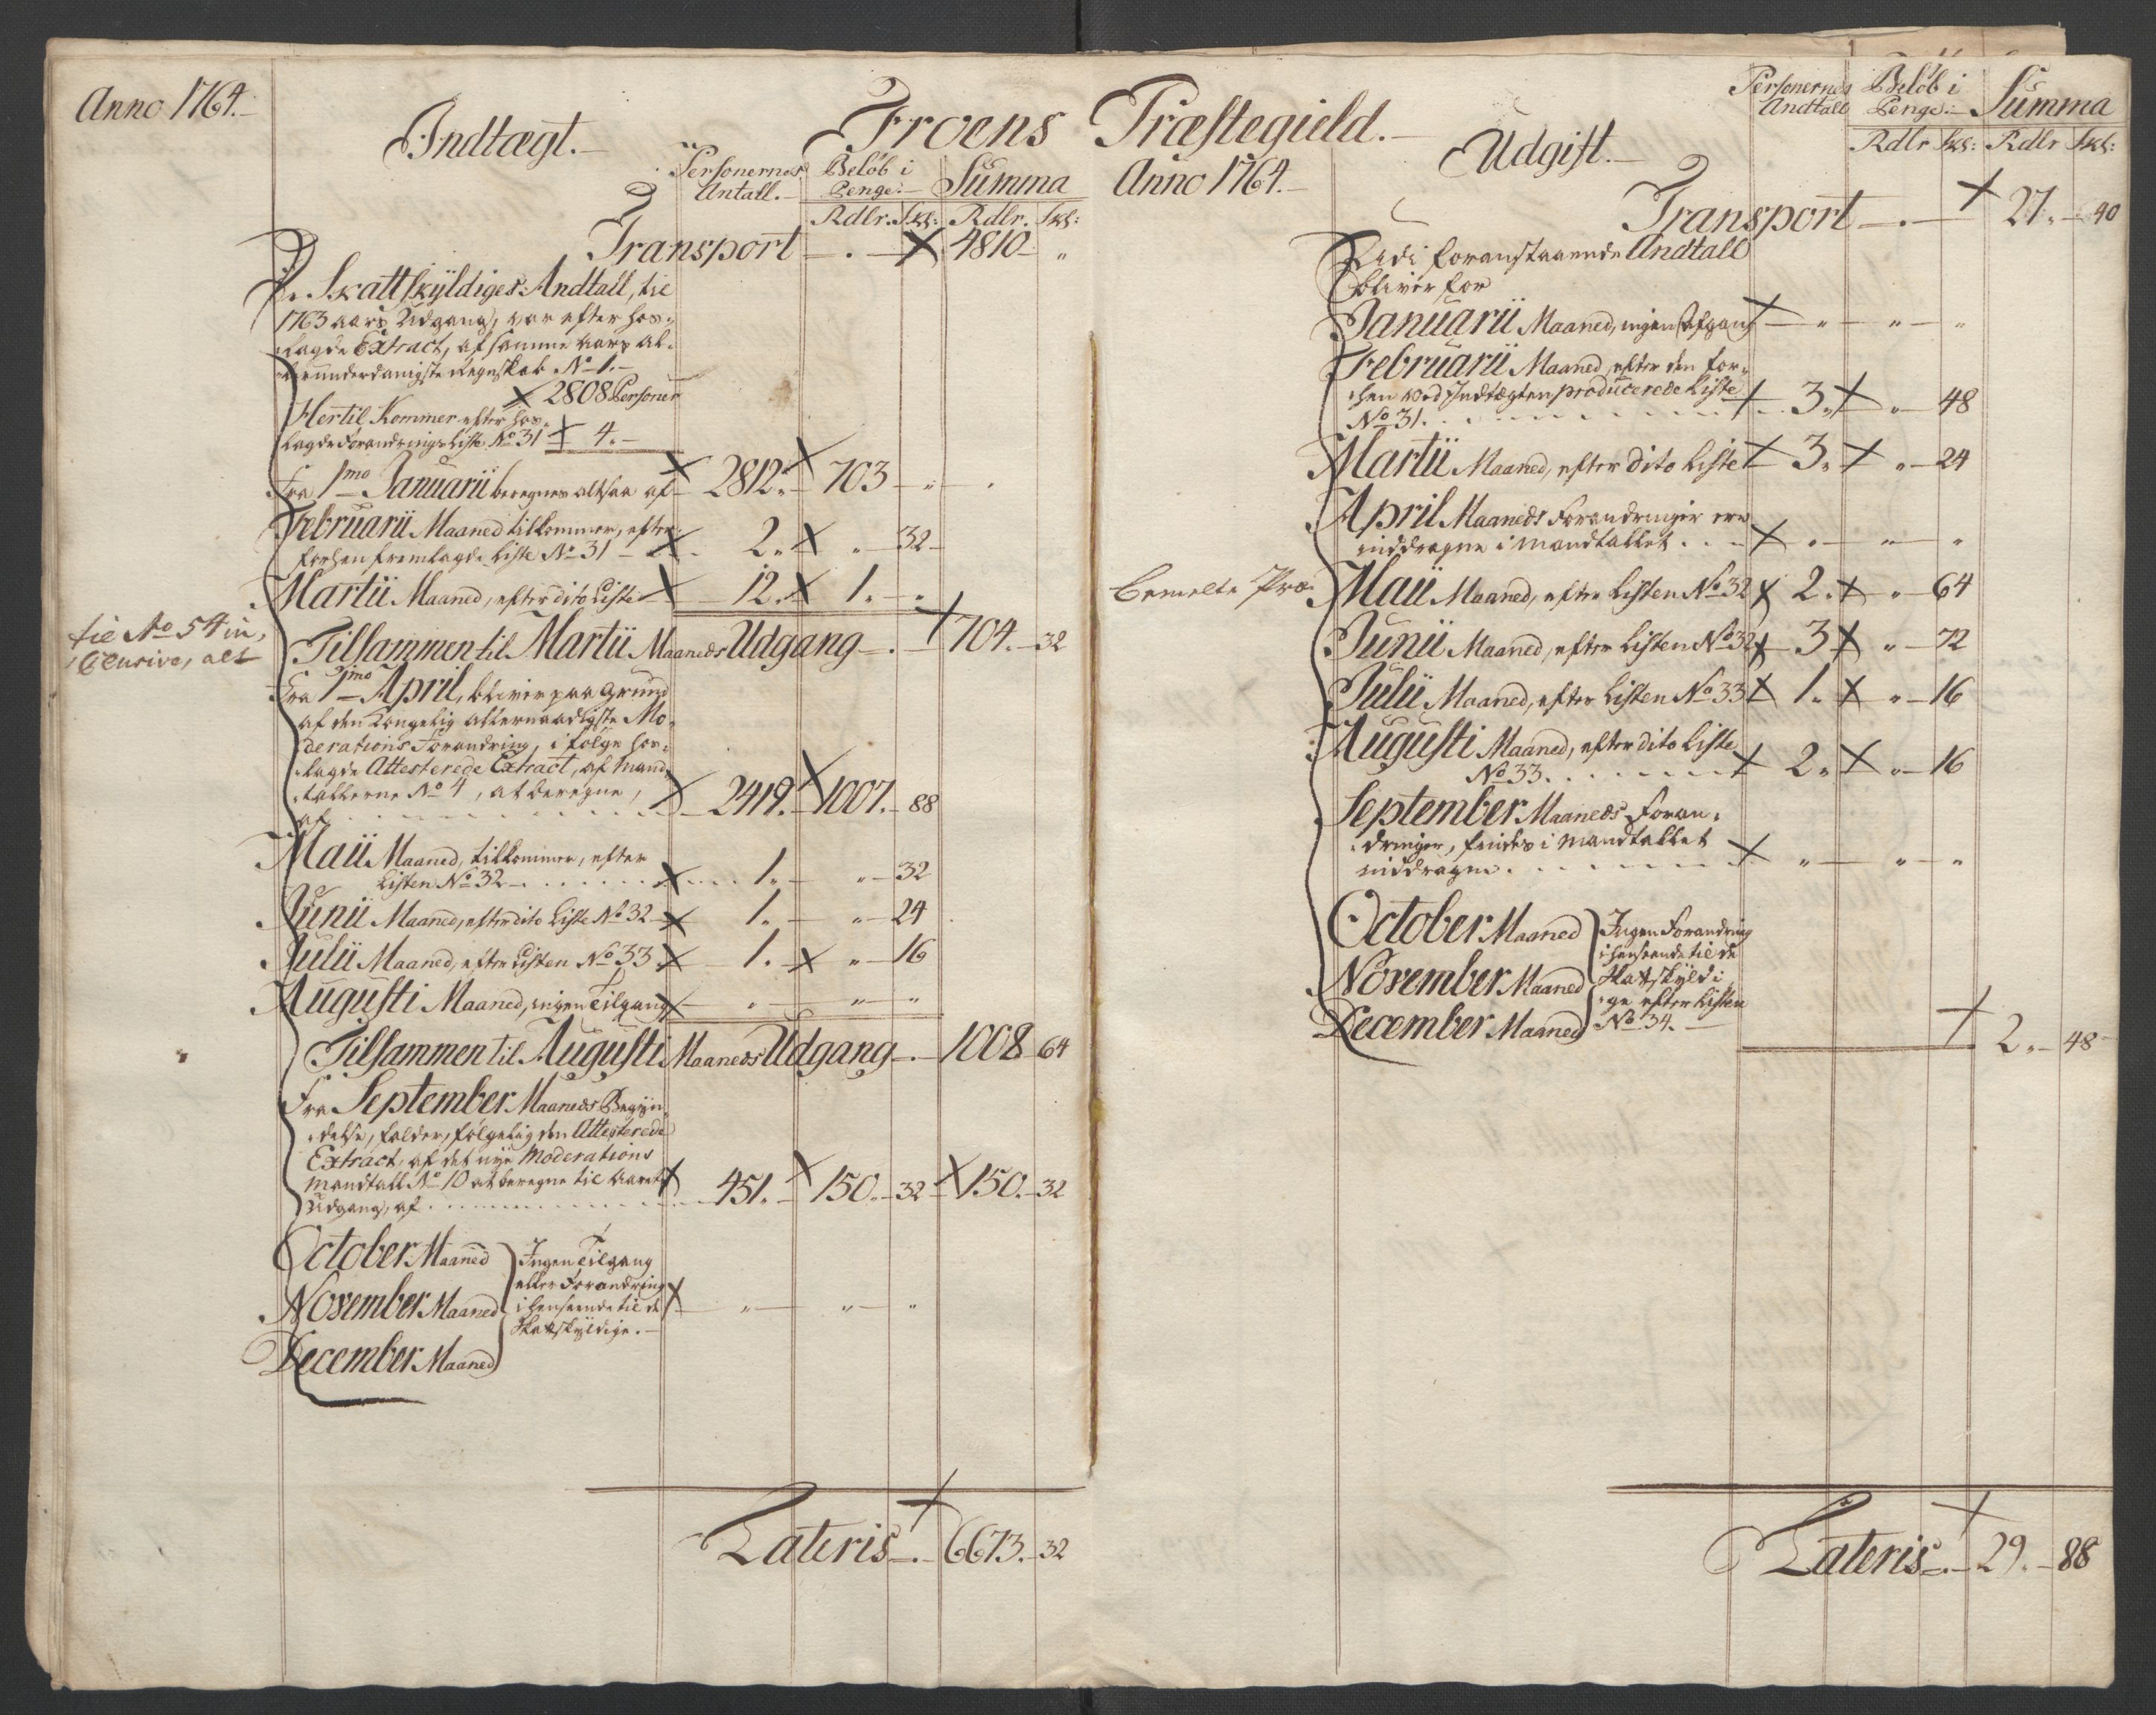 Anno 1764.
Froens Præstegield.
Indtægt.
Personernes Antall. Beløb i Penge. Summa
Rdlr. Skl: Rdlr. Skl:
Transport 4810 "
De Skattskÿldiges Andtall, til
1763 aars Udgang, var efter hos-
lagde Extract, af samme aars al-
lerunderdanigste Regnskab No 1.
2808 Personer
Hertil kommer efter hos-
lagde Forandrings Liste No 31 4.
Fra 1mo Januarii beregnes altsaa af 2812. 703 "
Februarii Maaned tilkommer, efter
forhen fremlagde Liste No 31 2. " 32
Martii Maaned, efter dito Liste 12. 1. "
Tilsammen til Martii Maaneds Udgang 704. 32
til No 54 in-
clusive, alt
Fra 1mo April, bliver paa Grund
af den Kongelig allernaadigste Mo-
derations Forandring, i følge hos-
lagde Attesterede Extract, af Mand-
tallerne No 4, at beregne,
af 2419. 1007. 88
Maii Maaned, tilkommer, efter
Listen No 32 1. " 32
Junii Maaned, efter dito Liste No 32 1. " 24
Julii Maaned, efter Listen No 33 1. " 16
Augusti Maaned, ingen Tilgang " " "
Tilsammen til Augusti Maaneds Udgang 1008 64
Fra September Maaneds Begÿn-
delse, falder, følgelig den Attesterede
Extract, af det nÿe Moderations
Mandtall No 10 at beregne til Aarets
Udgang, af 451. 150. 32 150. 32
October Maaned
November Maaned
December Maaned
Ingen Tilgang
eller Forandring
i henseende til de
Skatskÿldige. " " "
Lateris 6673. 32
Anno 1764.
Udgift.
Personernes Andtall Beløb i Penge. Summa
Rdlr Skl: Rdlr Skl:
Transport 27. 40
Udi foranstaaende Andtall
bliver for
Januarii Maaned, ingen Afgang " " "
Februarii Maaned, efter den for-
hen ved Indtægten producerede Liste
No 31. 3. " 48
Martii Maaned, efter dito Liste 3. " 24
April Maaneds Forandringer ere
inddragne i Mandtallet " " "
bemelte Præ-
Maii Maaned, efter Listen No 32 2. " 64
Junii Maaned, efter Listen No 32 3 " 72
Julii Maaned, efter Listen No 33 1. " 16
Augusti Maaned, efter dito Liste
No 33. 2. " 16
September Maaneds Foran-
dringer, findes i Mandtallet
inddragne. " " "
October Maaned
November Maaned
December Maaned
Ingen Forandring
i henseende til de
Skatskÿldi-
ge efter Listen
No 34.
2. 48
Lateris 29. 88